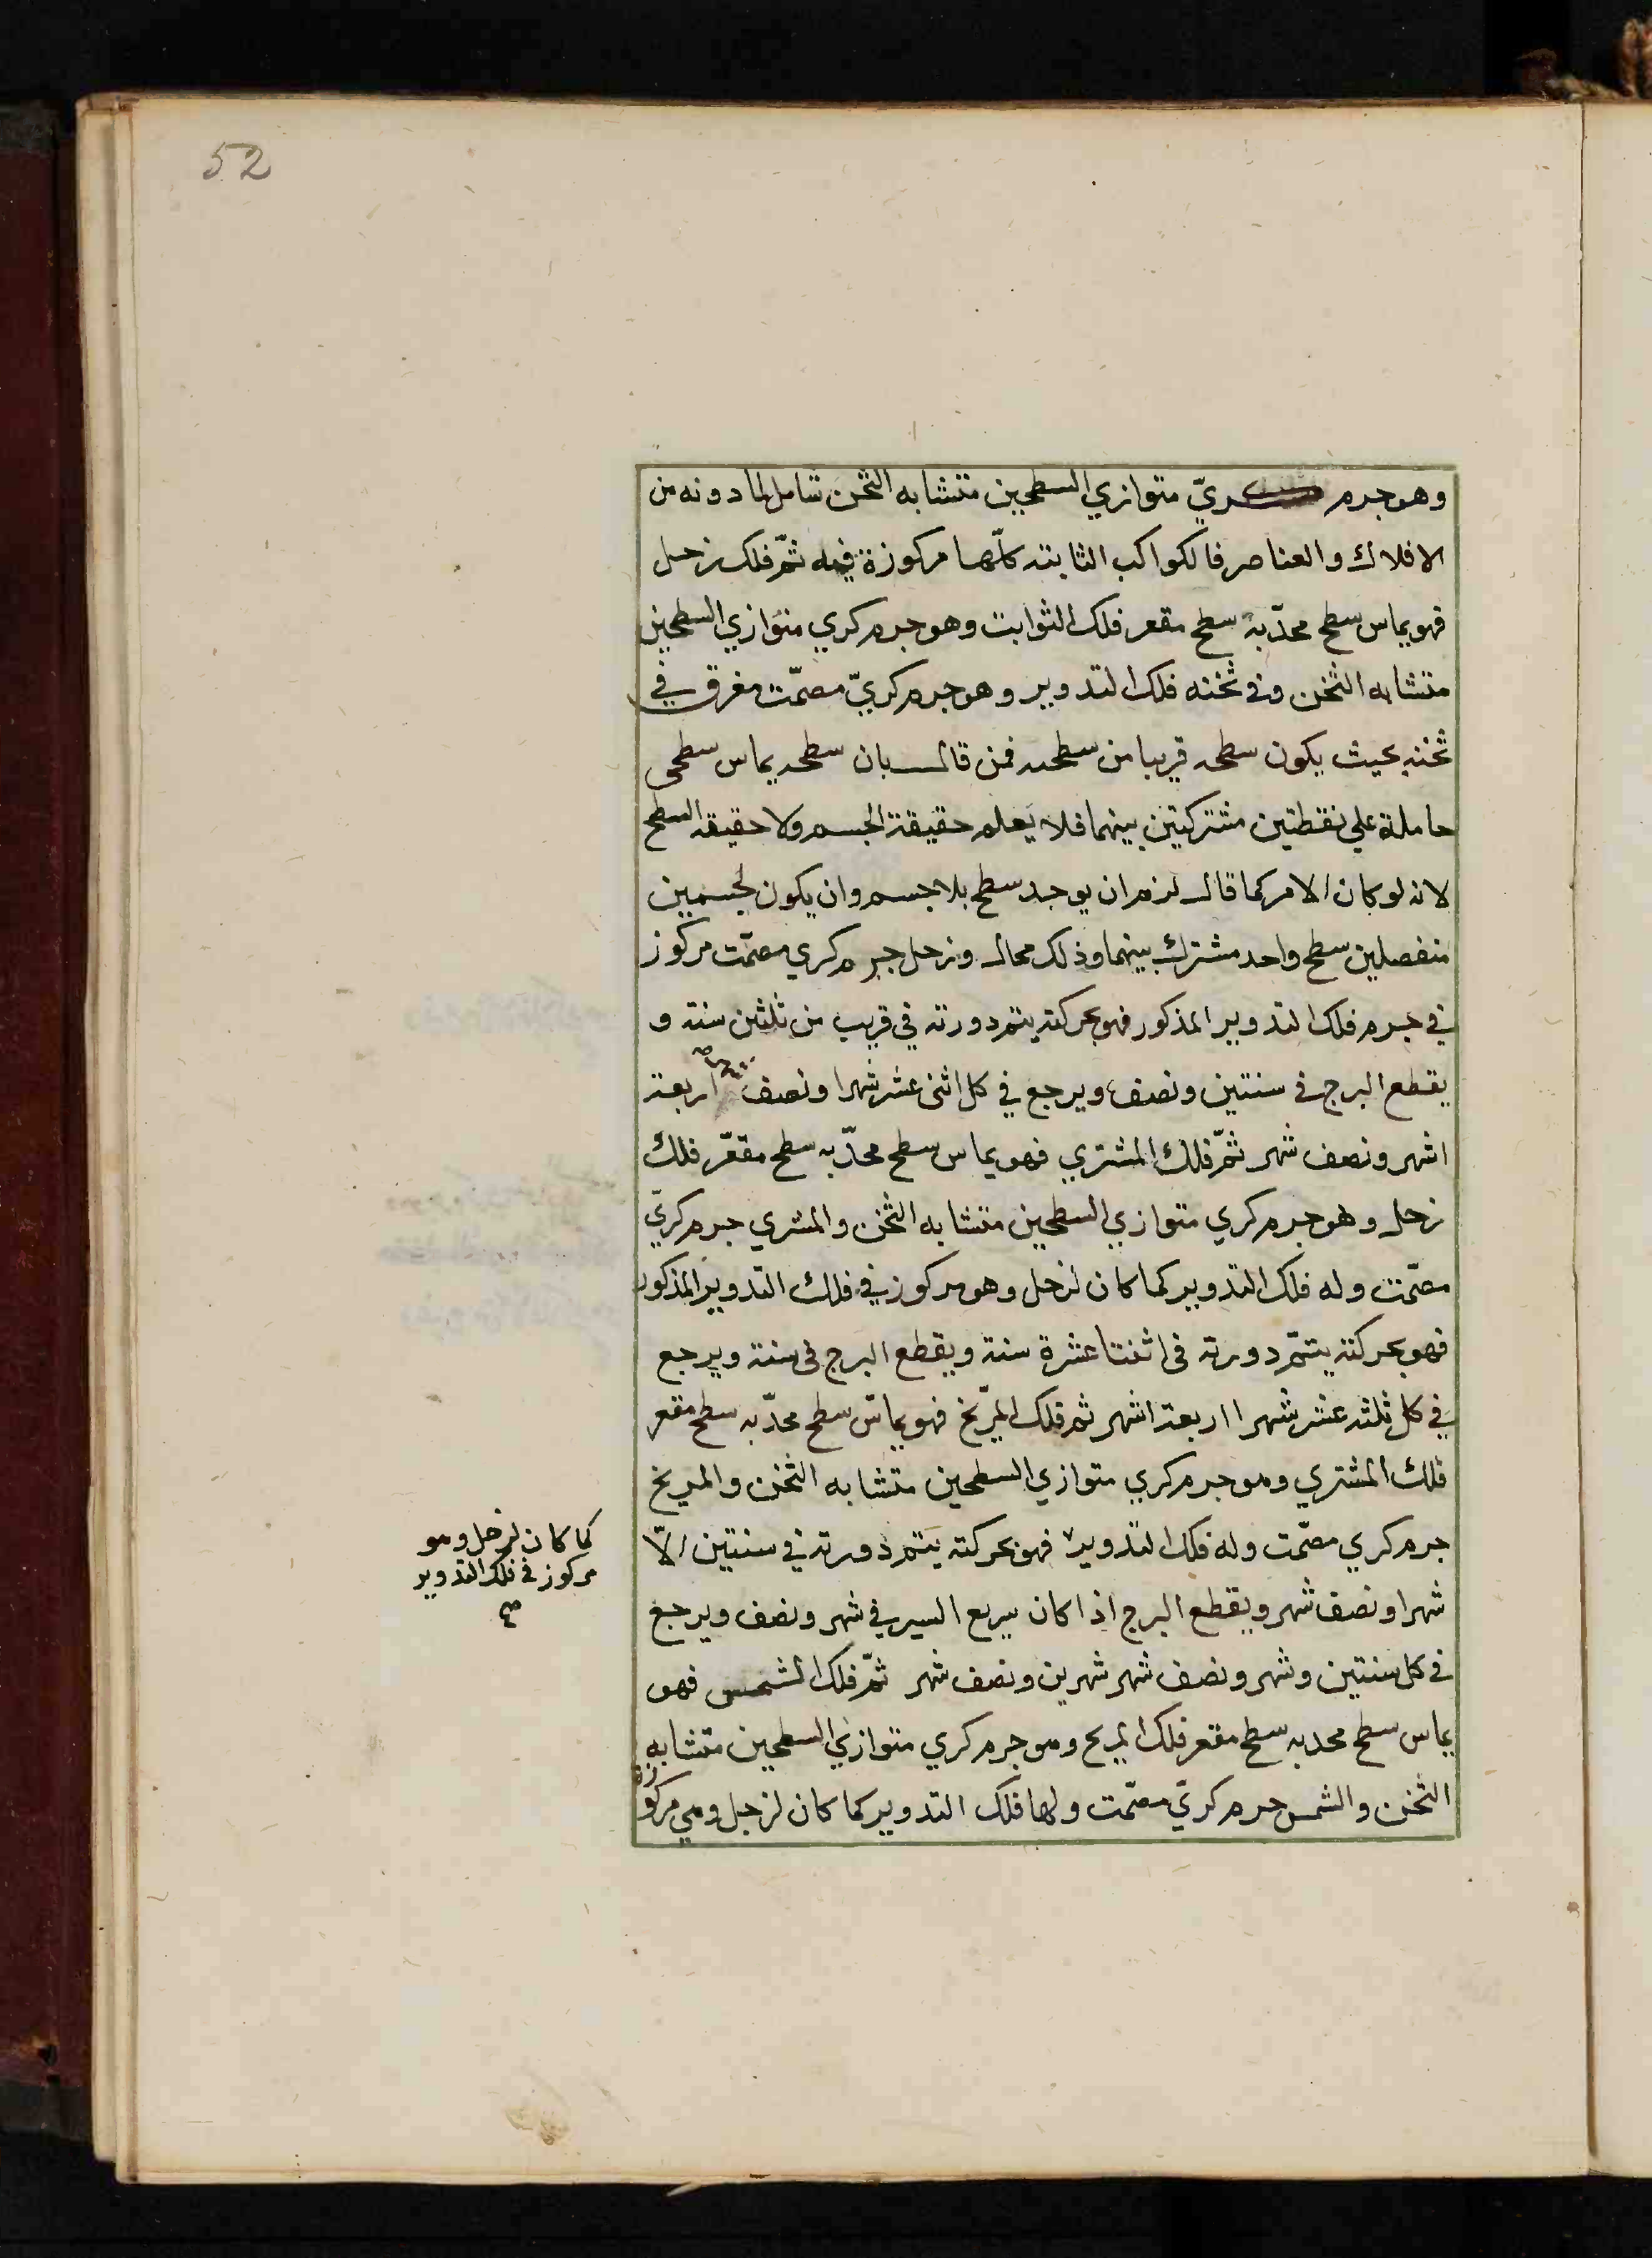 52
وهو جرم كريّ متوازي السطحين متشابه الثخن شامل لما دونه من
الافلاك والعناصر فالكواكب الثابته كلّها مركوزة فيه ثمّ فلك زحل
فهو يماس سطح محدّبه سطح مقعر فلك الثوابت وهو جرم كري متوازي السطحين
متشابه الثخن وفي ثخنه فلك التدوير وهو جرم كريّ مصمّت مغرق في
ثخنه بحيث يكون سطحه قريبا من سطحه فمن قال بان سطحه يماس سطحى
حاملة علي نقطتين مشتركتين بينهما فلا يعلم حقيقة الجسم ولا حقيقة السطح
لانه لو كان الامر كما قال لزم ان يوجد سطح بلا جسم وان يكون لجسمين
منفصلين سطح واحد مشترك بينهما وذلك محال وزحل جرم كري مصمّت مركوز
في جرم فلك التدوير المذكور فهو بحركته يتم دورته في قريب من ثلثين سنة و
يقطع البرج في سنتين ونصف ويرجع في كل اثنى عشر شهرا ونصف اربعة
اشهر ونصف شهر ثمّ فلك المشتري فهو يماس سطح محدّبه سطح مقعّر فلك
زحل وهو جرم كري متوازي السطحين متشابه الثخن والمشتري جرم كريّ
مصمّت وله فلك التدوير كما كان لزحل وهو مركوز في فلك التدوير المذكور
فهو بحركته يتمّ دورته في اثنتا عشرة سنة ويقطع البرج في سنة ويرجع
في كل ثلثه عشر شهرا اربعة اشهر ثم فلك المرّيخ فهو يماسّ سطح محدّبه سطح مقعر
فلك المشتري وهو جرم كري متوازي السطحين متشابه الثخن والمريخ
جرم كري مصمّت وله فلك التدوير فهو بحركته يتم دورته في سنتين الّا
كما كان لزحل وهو
مركوز في فلك التدوير
صح
شهرا ونصف شهر ويقطع البرج اذا كان سريع السير في شهر ونصف ويرجع
في كل سنتين وشهر ونصف شهر شهرين ونصف شهر ثمّ فلك الشمس فهو
يماس سطح محدبه سطح مقعر فلك المريخ وهو جرم كري متوازي السطحين متشابه
الثخن والشمس جرم كريّ مصمّت ولها فلك التدوير كما كان لزحل وهي مركوزة